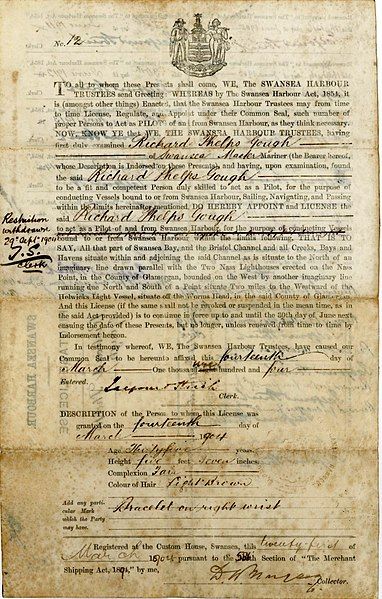 No. 12
TO all to whom these Presents shall come, WE, THE SWANSEA HARBOUR
TRUSTEES send Greeting: WHEREAS by The Swansea Harbour Act, 1854, it
is (amongst other things) Enacted, that the Swansea Harbour Trustees may from time
to time License, Regulate, and Appoint under their Common Seal, such number of
proper Persons to Act as PILOTS of and from Swansea Harbour, as they think necessary.
NOW, KNOW YE that WE, THE SWANSEA HARBOUR TRUSTEES, having
first duly examined Richard Phelps Gough
of Swansea Master Mariner (the Bearer hereof,
whose Description is Indorsed on these Presents), and having, upon examination, found
the said Richard Phelps Gough
to be a fit and competent Person duly skilled to act as a Pilot, for the purpose of
conducting Vessels bound to or from Swansea Harbour, Sailing, Navigating, and Passing
within the Limits hereinafter mentioned, DO HEREBY APPOINT and LICENSE the
said Richard Phelps Gough
to act as a Pilot of and from Swansea Harbour, for the purpose of conducting Vessels
bound to or from Swansea Harbour within the limits following, THAT IS TO
SAY, All that part of Swansea Bay, and the Bristol Channel and all Ports and
Havens situate within and adjoining the said Channel as is situate to the North of an
imaginary line drawn parallel with the Two Nass Lighthouses erected on the Nass
Point, in the County of Glamorgan, bounded on the West by another imaginary line
running due North and South of a Point situate Two miles to the Westward of the
Helwicks Light Vessel, situate off the Worms Head, in the said County of Glamorgan,
And this License (if the same shall not be revoked or suspended in the mean time, as in
the said Act provided) is to continue in force up to and until the 30th day of June next
ensuing the date of these Presents, but no longer, unless renewed from time to time by
Indorsement hereon.
Restriction
withdrawn
29th Sept 1904
Clerk
In testimony whereof, WE, The Swansea Harbour Trustees, have caused our
Common Seal to be hereunto affixed this fourteenth day of
March One thousand nine hundred and four
Entered,
Clerk.
DESCRIPTION of the Person to whom this License was
granted on the fourteenth day of
March 1904
Age Thirtyfive years.
Height five feet seven inches.
Complexion Fair
Colour of Hair Light Brown
Add any parti-
cular Mark
which the Party
may have.
Bracelet on right wrist
Registered at the Custom House, Swansea, this twenty first of
March 1904 pursuant to the Section of "The Merchant
Shipping Act, 1894," by me,
Collector.
SWANSEA HARBOUR